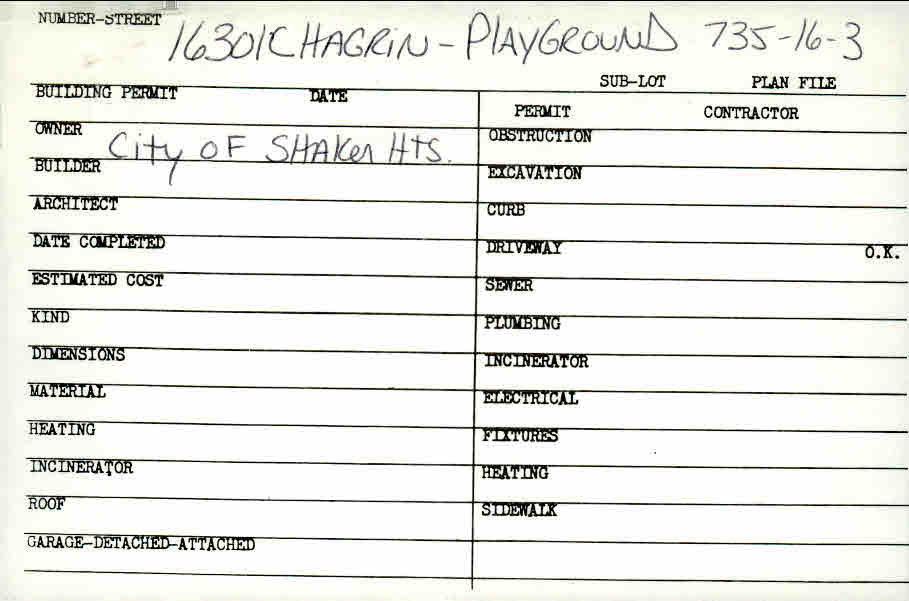 NUMBER-STREET 16301 CHAGRIN - PLAYGROUND 735-16-3
SUB-LOT PLAN FILE
BUILDING PERMIT DATE
PERMIT CONTRACTOR
OWNER City OF SHAKer HTS.
OBSTRUCTION
BUILDER
EXCAVATION
ARCHITECT
CURB
DATE COMPLETED
DRIVEWAY O.K.
ESTIMATED COST
SEWER
KIND
PLUMBING
DIMENSIONS
INCINERATOR
MATERIAL
ELECTRICAL
HEATING
FIXTURES
INCINERATOR
HEATING
ROOF
SIDEWALK
GARAGE-DETACHED-ATTACHED